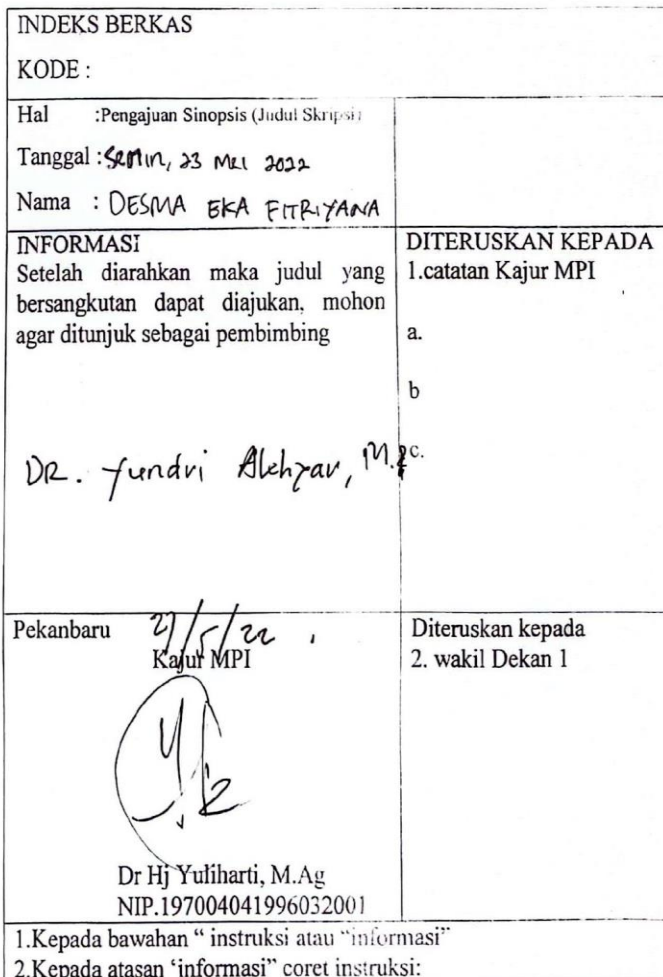 INDEKS BERKAS
KODE :
Hal :Pengajuan Sinopsis (Judul Skripsi)
Tanggal : Senin, 23 Mei 2022
Nama : DESMA EKA FITRIYANA
INFORMASI
Setelah diarahkan maka judul yang
bersangkutan dapat diajukan, mohon
agar ditunjuk sebagai pembimbing
DR. Yundri Akhyar, M.
DITERUSKAN KEPADA
1.catatan Kajur MPI
a.
b
c.
Pekanbaru 27/5/22 .
Kajur MPI
Dr Hj Yuliharti, M.Ag
NIP.197004041996032001
Diteruskan kepada
2. wakil Dekan 1
1.Kepada bawahan “ instruksi atau “informasi”
2.Kepada atasan ‘informasi” coret instruksi: